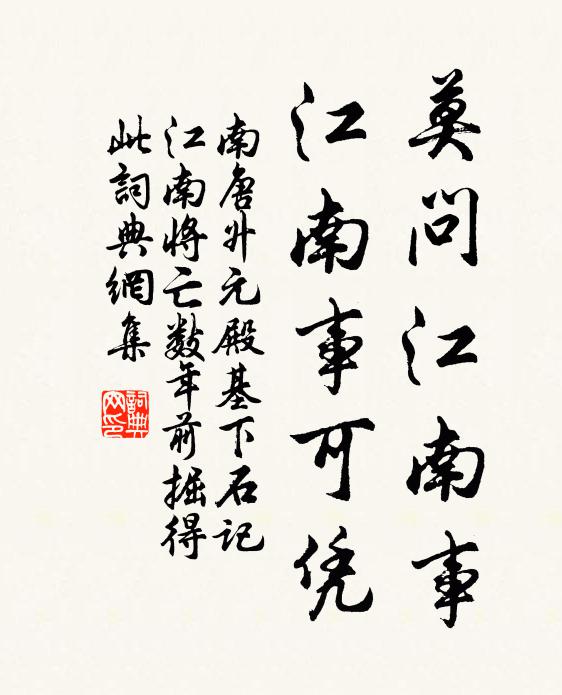 莫问江南事
江南事可凭
南唐升元殿基下石记
江南将亡数年前掘得
此词典网集
词典网印